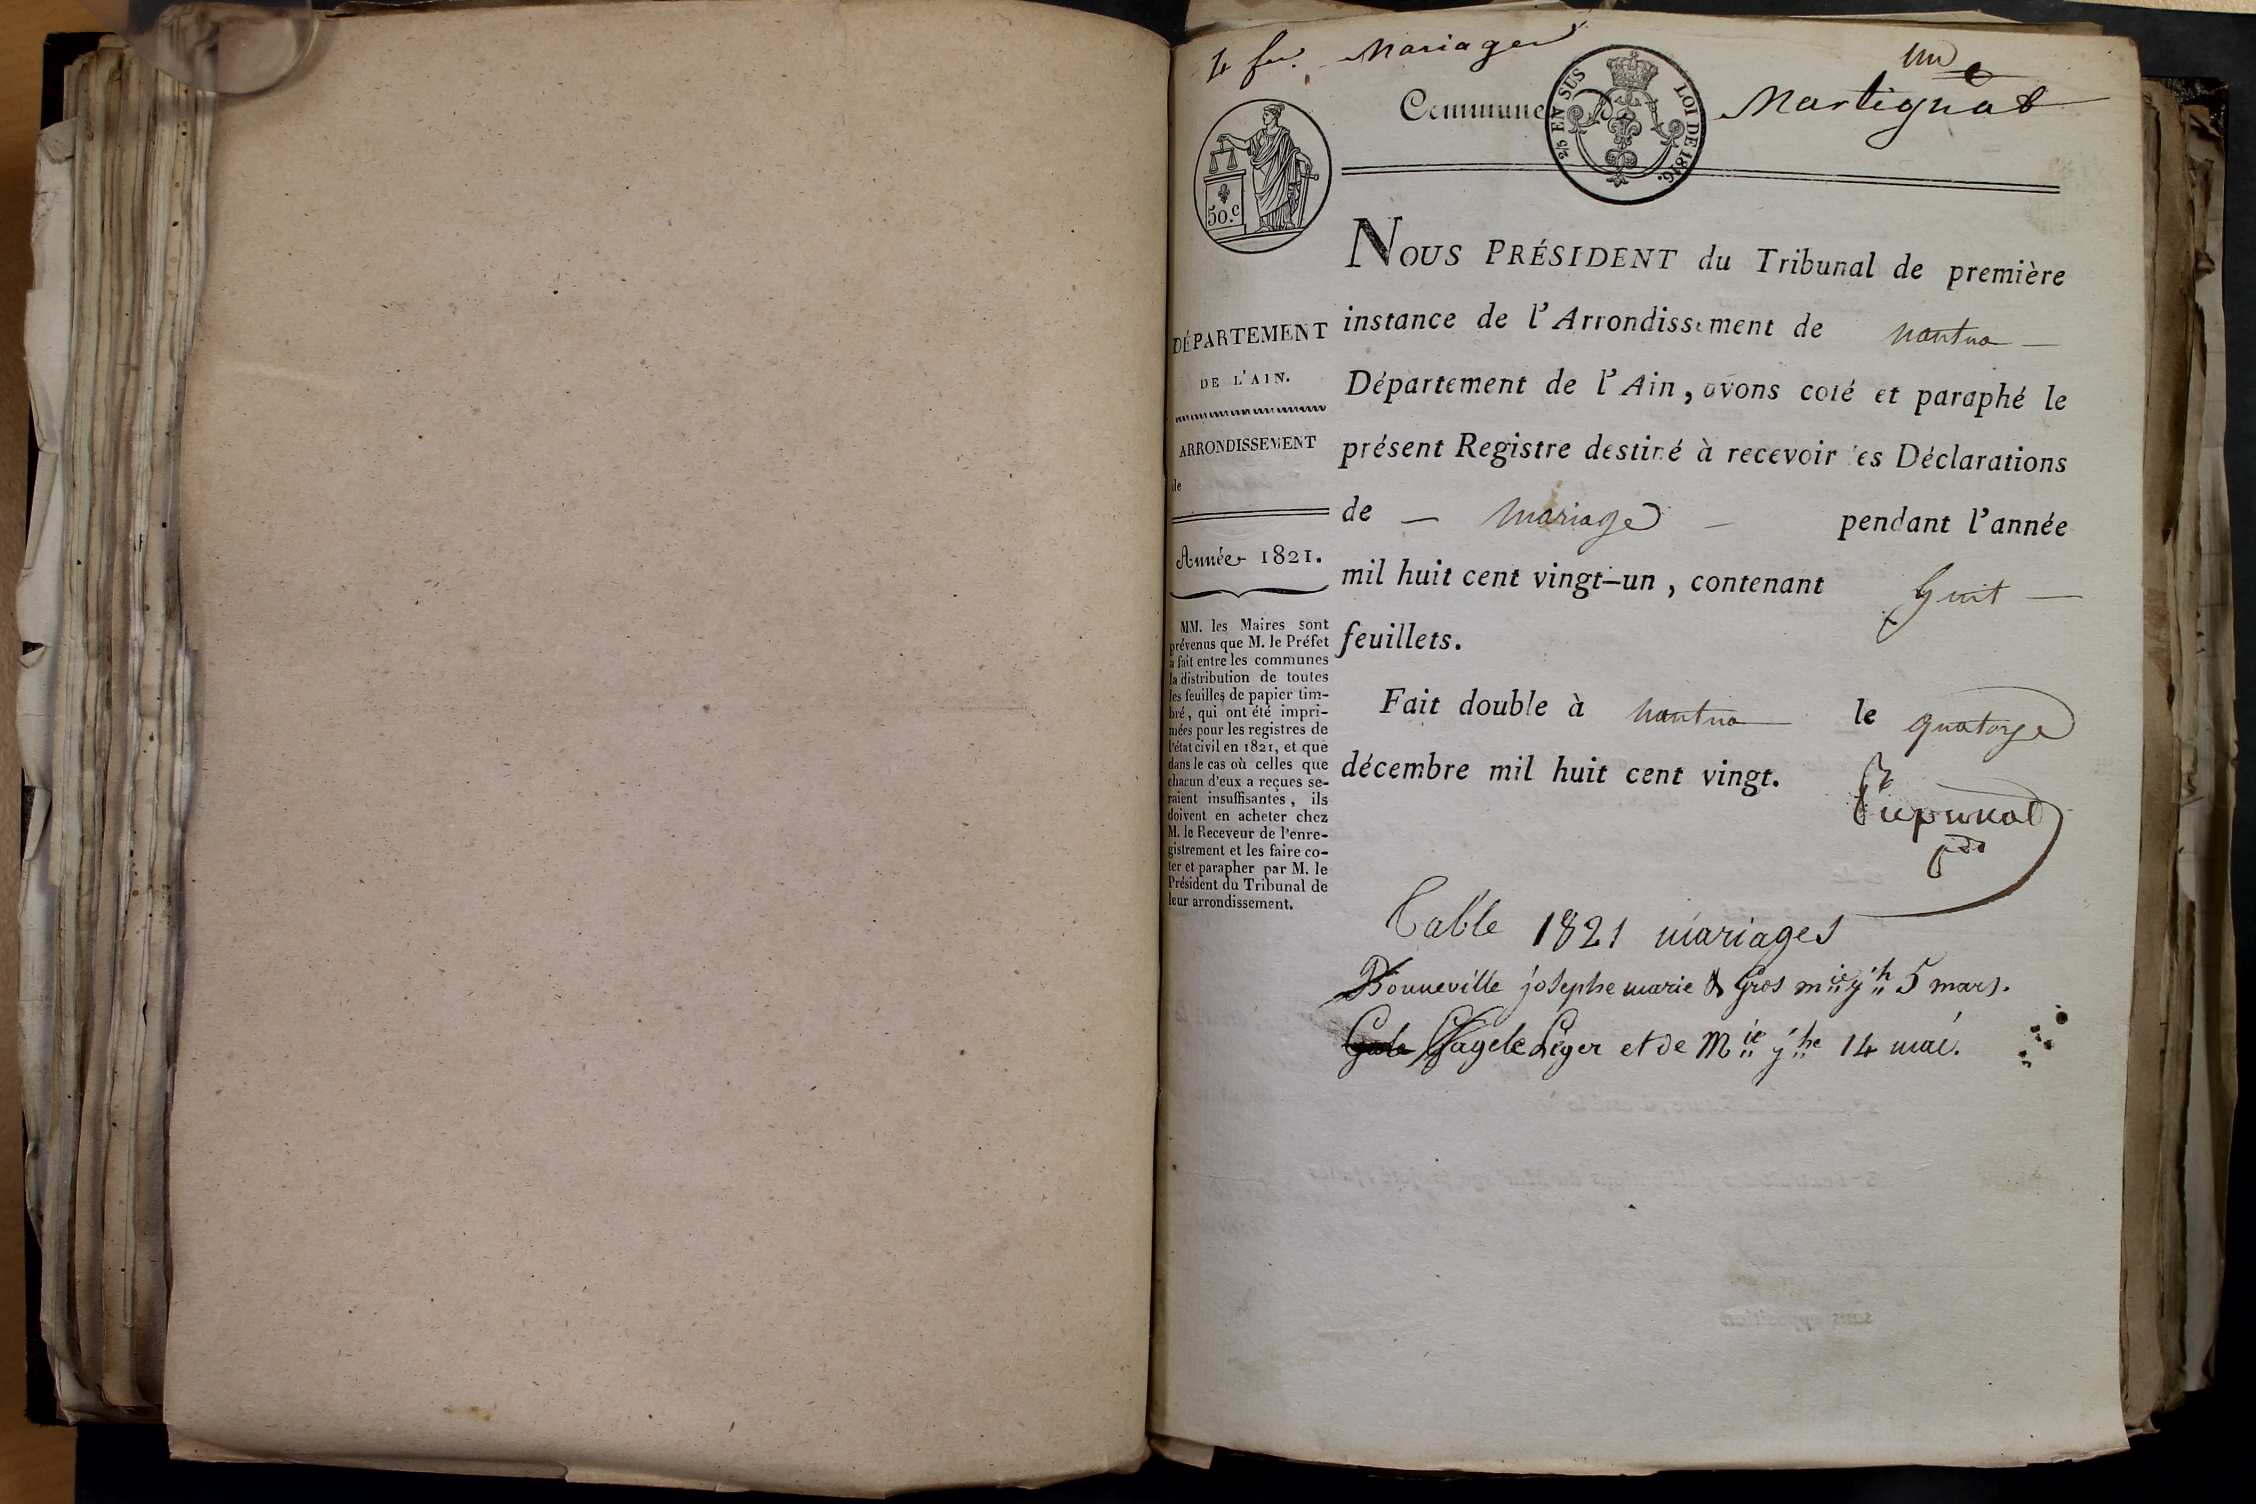 4 fu. Mariages
un
Commune de Martignat
2/5 EN SUS
LOI DE 1816.
50.c
NOUS PRÉSIDENT du Tribunal de première
instance de l'Arrondissement de nantua
Département de l'Ain, avons coté et paraphé le
présent Registre destiné à recevoir les Déclarations
de mariage pendant l'année
mil huit cent vingt-un, contenant huit
feuillets.
Fait double à nantua le quatorze
décembre mil huit cent vingt.
pdt
DÉPARTEMENT
DE L'AIN.
ARRONDISSEMENT
de
Année 1821.
MM. les Maires sont
prévenus que M. le Préfet
a fait entre les communes
la distribution de toutes
les feuilles de papier tim-
bré, qui ont été impri-
mées pour les registres de
l'état civil en 1821, et que
dans le cas où celles que
chacun d'eux a reçues se-
raient insuffisantes, ils
doivent en acheter chez
M. le Receveur de l'enre-
gistrement et les faire co-
ter et parapher par M. le
Président du Tribunal de
leur arrondissement.
Table 1821 mariages
Bonneville josephe marie & Gros mie jh 5 mars.
Léger et de Mie jhe 14 mai.